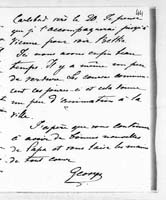 44
Carlsbad vers le 20. Je pense
que je t'accompagnerai jusqu'à
Vienne pour voir
Ici nous avons enfin beau
temps. Il y a même un peu
de verdure. Les courses commen-
cent ces jours-ci et cela donne
un peu d'animation à la
ville.
J'espère que vous continuez
à avoir de bonnes nouvelles
de Papa et vous baise les mains
de tout cœur.
Georges